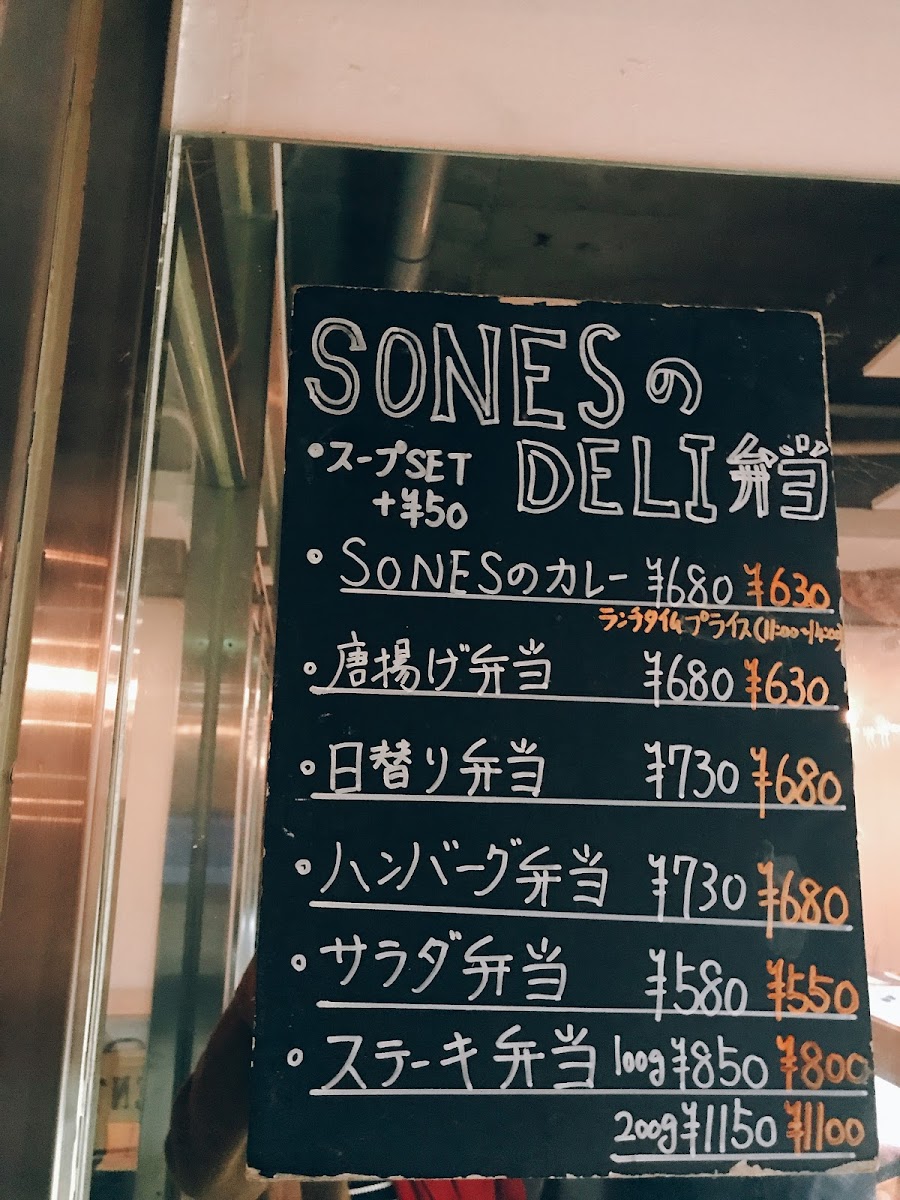 SONESの
DELI弁当
・スープSET
+¥50
・SONESのカレー ¥680 ¥630
ランチタイムプライス(11:00〜14:00)
・唐揚げ弁当 ¥680 ¥630
・日替り弁当 ¥730 ¥680
・ハンバーグ弁当 ¥730 ¥680
・サラダ弁当 ¥580 ¥550
・ステーキ弁当 100g ¥850 ¥800
200g ¥1150 ¥1100